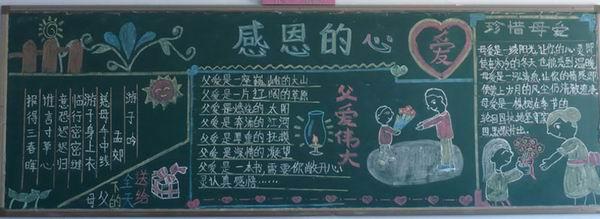 感恩的心
爱
游子吟
孟郊
慈母手中线
游子身上衣
临行密密缝
意恐迟迟归
谁言寸草心
报得三春晖
送给
全天
下的
父母
父爱是一座巍峨的大山
父爱是一片的草原
父爱是燃烧的太阳
父爱是奔流的江河
父爱是的抚摸
父爱是深情的凝望
父爱是一本书,需要你敞开心
灵认真感悟……
父爱伟大
珍惜母爱
母爱是一缕阳光,让你的心灵即
使在寒冷的冬天也能感到温暖
母爱是一泓清泉,让你的情感即
使蒙上岁月的风尘仍清澈
母爱是一棵树,在季节的
轮回